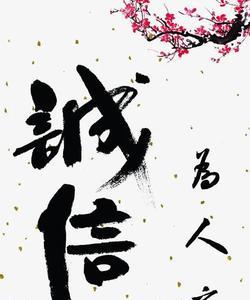 誠信
為人